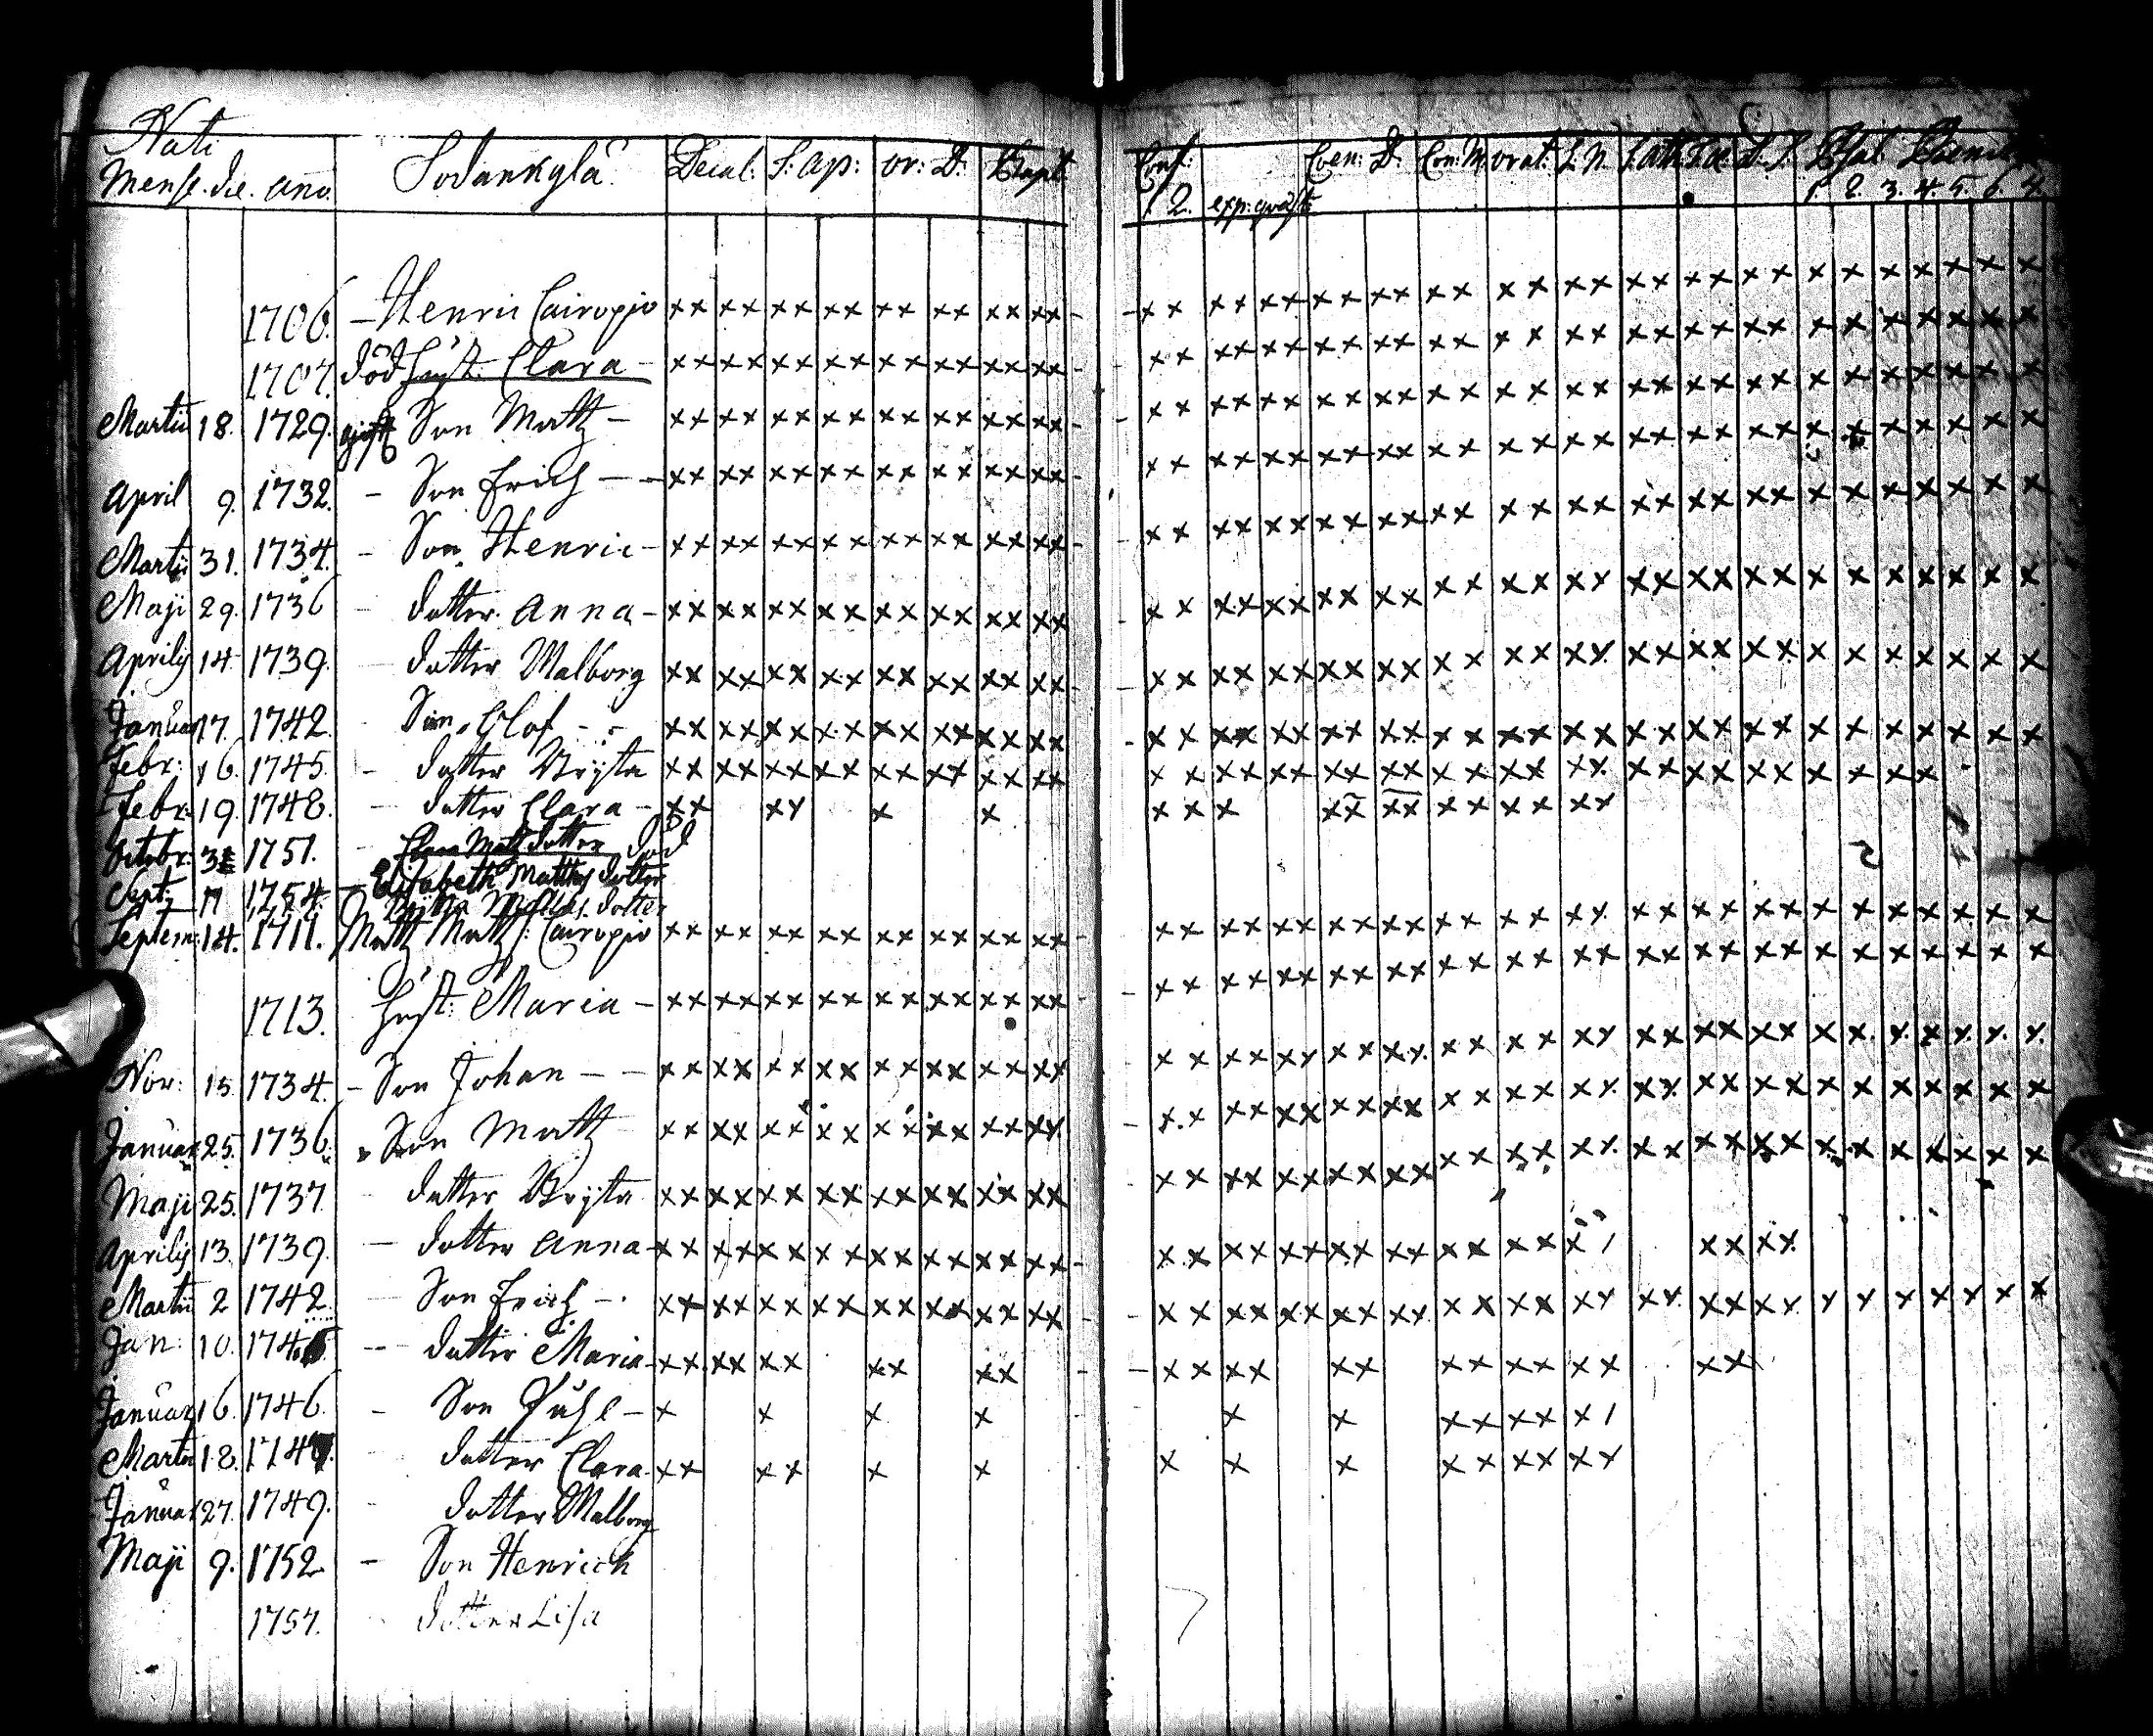 Nati
Mens. die. ano. Sodankylä Decal: S: ap: or: D: Bapt: Conf: Coen: D: Con: M orat: S. N. S. ath: T. œ. D: P. Psal: Poenit
1 2. exp: qväst: 1. 2. 3. 4. 5. 6. 7.
1706. – Henric Cairopio xx xx xx xx xx xx xx xx - - xx xx xx xx xx xx xx xx xx xx xx x x x x x x x
1707. död hust: Clara – xx xx xx xx xx xx xx xx - - xx xx xx xx xx xx xx xx xx xx xx x x x x x x x
Martii 18. 1729. gift Son Matz – xx xx xx xx xx xx xx xx - - xx xx xx xx xx xx xx xx xx xx xx x x x x x x x
April 9. 1732. – Son Erich – – xx xx xx xx xx xx xx xx - xx xx xx xx xx xx xx xx xx xx xx x x x x x x x
Martii 31. 1734. – Son Henric – xx xx xx xx xx xx xx xx - - xx xx xx xx xx xx xx xx xx xx xx x x x x x x x
Maji 29. 1736 – dotter Anna – xx xx xx xx xx xx xx xx - xx xx xx xx xx xx xx xx xx xx xx x x x x x x x
Aprilis 14. 1739. dotter Malborg xx xx xx xx xx xx xx xx - - xx xx xx xx xx xx xx xx xx xx xx x x x x x x x
Januar 17. 1742. - Son Olof - - xx xx xx xx xx xx xx xx - xx xx xx xx xx xx xx xx xx xx xx x x x x x x x
Febr: 16. 1745. – dotter Bryta xx xx xx xx xx xx xx xx xx xx xx xx xx xx xx xx xx xx xx x x x x
Febr: 19. 1748. – dotter Clara – xx xx x x xx x xx xx xx xx xx
Octobr: 1751. – Clara Matz dotter död
Sept: 17 1754. – Elisabeth Matths dotter
Septem: 14. 1711. Matz Matz: Cairopio xx xx xx xx xx xx xx xx - xx xx xx xx xx xx xx xx xx xx xx x x x x x x x
1713. hust: Maria – xx xx xx xx xx xx xx xx - - xx xx xx xx xx xx xx xx xx xx xx x x x x x x x
Nov: 15. 1734. – Son Johan – – xx xx xx xx xx xx xx xx xx xx xx xx xx xx xx xx xx xx xx x x x x x x x
Januar 25. 1736. Son Matz xx xx xx xx xx xx xx xx - xx xx xx xx xx xx xx xx xx xx xx x x x x x x x
Maji 25. 1737 - dotter Bryta xx xx xx xx xx xx xx xx xx xx xx xx xx xx xx xx xx xx xx x x x x x x x
Aprilis 13. 1739. – dotter Anna – xx xx xx xx xx xx xx xx - xx xx xx xx xx xx xx x / xx xx
Martii 2 1742. – Son Erich – xx xx xx xx xx xx xx xx - - xx xx xx xx xx xx xx xx xx xx xx x x x x x x x
Jan: 10. – dotter Maria – xx xx xx xx xx - - xx xx xx xx xx xx xx
Januar 16. 1746. - Son Påhl – x x x x x x xx xx x /
Martii 18. dotter Clara xx xx x x x x x xx xx xx
Januar 27. 1749. - dotter Malborg
Maji 9. 1752. – Son Henrich
1757. - dotter Lisa